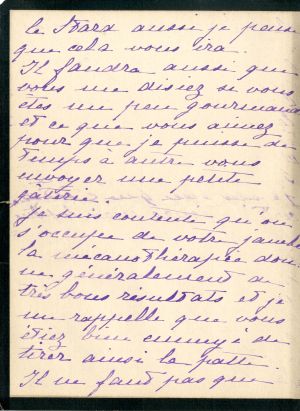 le Starx aussi je pense
que cela vous ira.
Il faudra aussi que
vous me disiez si vous
êtes un peu gourmand
et ce que vous aimez
pour que je puisse de
temps à autre vous
envoyer une petite
gâterie.
Je suis contente qu'on
s'occupe de votre jambe
la mécanothérapie don
ne généralement de
très bons résultats et je
me rappelle que vous
étiez bien ennuyé de
tirer ainsi la patte.
Il ne faut pas que